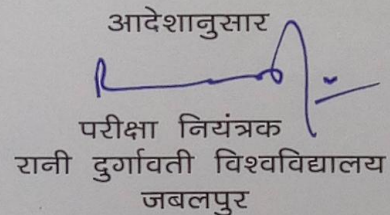 आदेशानुसार
परीक्षा नियंत्रक
रानी दुर्गावती विश्वविद्यालय
जबलपुर